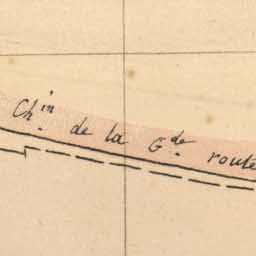 Ch.in de la G.de route